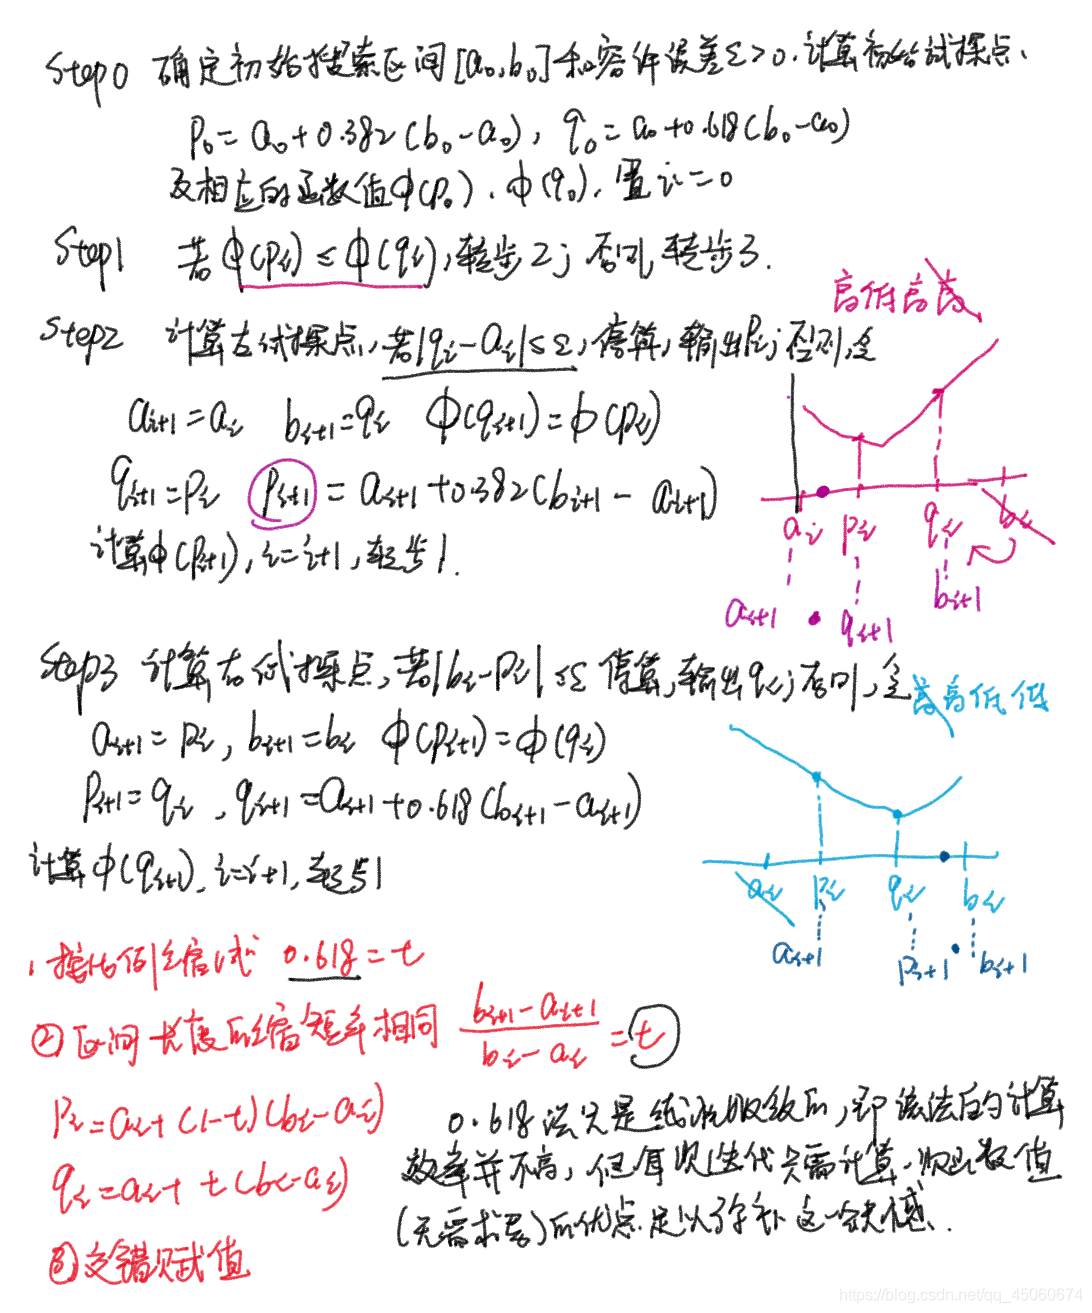 Step0 确定初始搜索区间[a₀,b₀]和容许误差ε>0.计算初始试探点、
p₀=a₀+0.382(b₀-a₀), q₀=a₀+0.618(b₀-a₀)
及相应的函数值φ(p₀)、φ(q₀).置i=0
Step1 若φ(pᵢ)≤φ(qᵢ),转步2;否则转步3.
高低高高
Step2 计算左试探点,若|qᵢ-aᵢ|≤ε,停算,输出pᵢ;否则,令
aᵢ₊₁=aᵢ bᵢ₊₁=qᵢ φ(qᵢ₊₁)=φ(pᵢ)
qᵢ₊₁=pᵢ pᵢ₊₁=aᵢ₊₁+0.382(bᵢ₊₁-aᵢ₊₁)
计算φ(pᵢ₊₁),i=i+1,转步1.
aᵢ pᵢ qᵢ bᵢ
aᵢ₊₁ qᵢ₊₁ bᵢ₊₁
Step3 计算右试探点,若|bᵢ-pᵢ|≤ε 停算,输出qᵢ;否则,令
高高低低
aᵢ₊₁=pᵢ,bᵢ₊₁=bᵢ φ(pᵢ₊₁)=φ(qᵢ)
pᵢ₊₁=qᵢ,qᵢ₊₁=aᵢ₊₁+0.618(bᵢ₊₁-aᵢ₊₁)
计算φ(qᵢ₊₁).i=i+1,转步1
aᵢ pᵢ qᵢ bᵢ
aᵢ₊₁ pᵢ₊₁ bᵢ₊₁
1 按比例缩减 0.618=t
② 区间长度的缩短率相同 (bᵢ₊₁-aᵢ₊₁)/(bᵢ-aᵢ)=t
pᵢ=aᵢ+(1-t)(bᵢ-aᵢ)
qᵢ=aᵢ+t(bᵢ-aᵢ)
③交错赋值
0.618法只是线性收敛的,即该法的计算
效率并不高,但每次迭代只需计算一次函数值
(无需求导)的优点足以弥补这一缺憾.
https://blog.csdn.net/qq_45060674